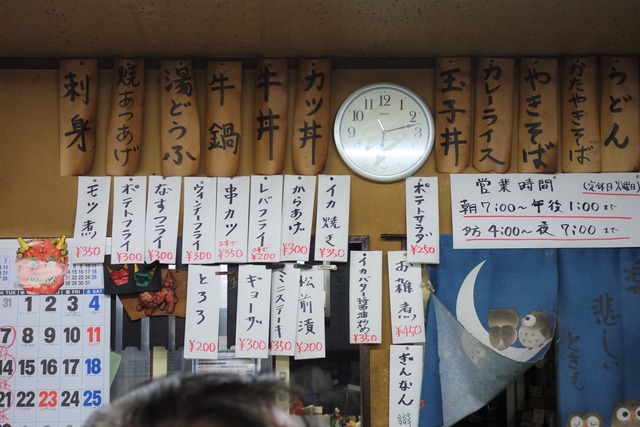 刺身
焼あつあげ
湯どうふ
牛鍋
牛丼
カツ丼
玉子丼
カレーライス
やきそば
かたやきそば
うどん
モツ煮 ¥350
ポテトフライ ¥300
なすフライ ¥300
ウィンナーフライ ¥300
串カツ 2本で¥350
レバフライ 2本で¥200
からあげ ¥300
イカ焼き ¥350
ポテトサラダ ¥250
営業時間 (定休日火曜日)
朝7:00〜午後1:00まで
夕方4:00〜夜7:00まで
とろろ ¥200
ギョーザ ¥300
ミニステーキ ¥350
松前漬 ¥200
イカバター醤油炒め ¥350
お雑煮 ¥450
ぎんなん
悲しい
ときも
FRI SAT
31 1 2 3 4
7 8 9 10 11
14 15 16 17 18
21 22 23 24 25
12
1
2
3
4
5
6
7
8
9
10
11